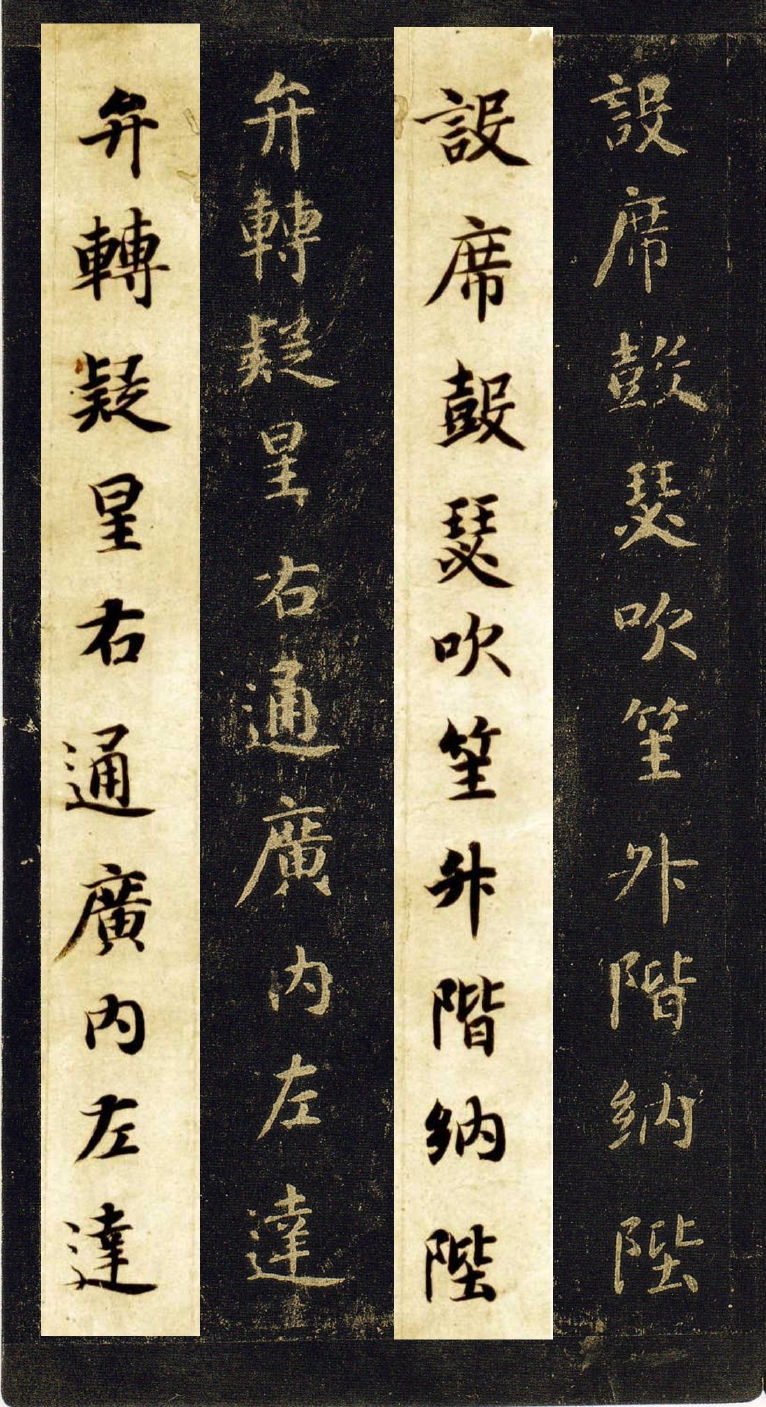 設席鼓瑟吹笙升階納陛
設席鼓瑟吹笙升階納陛
弁轉疑星右通廣内左達
弁轉疑星右通廣内左達